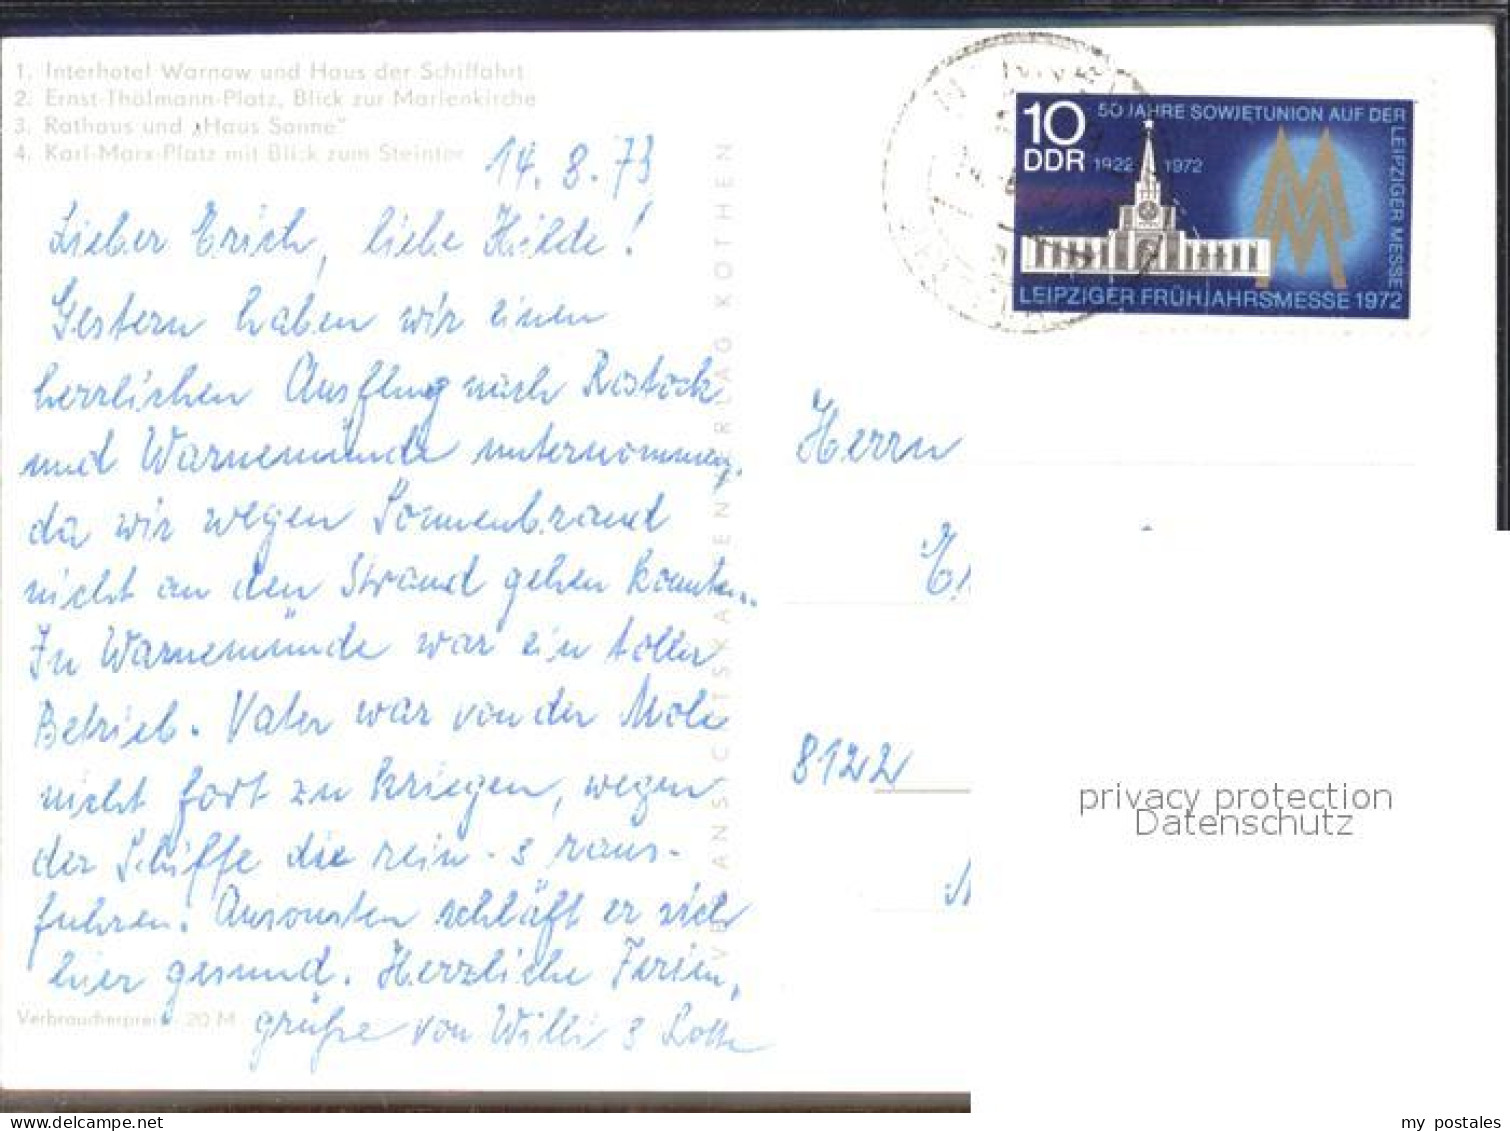 1. Interhotel Warnow und Haus der Schiffahrt
2. Ernst-Thälmann-Platz, Blick zur Marienkirche
3. Rathaus und „Haus Sonne“
4. Karl-Marx-Platz mit Blick zum Steintor
14. 8. 73
Lieber Erich, liebe Hilde!
Gestern haben wir einen
herrlichen Ausflug nach Rostock
und Warnemünde unternommen,
da wir wegen Sonnenbrand
nicht an den Strand gehen konnten.
In Warnemünde war ein toller
Betrieb. Vater war von der Mole
nicht fort zu kriegen, wegen
der Schiffe die rein- & raus-
fuhren. Ansonsten schläft er sich
hier gesund. Herzliche Ferien,
grüße von Willi &
Verbraucherpreis -,20 M
VERLAG KÖTHEN
10
DDR
50 JAHRE SOWJETUNION AUF DER
LEIPZIGER MESSE
1922 1972
MM
LEIPZIGER FRÜHJAHRSMESSE 1972
Herrn
8122
privacy protection
Datenschutz
my postales